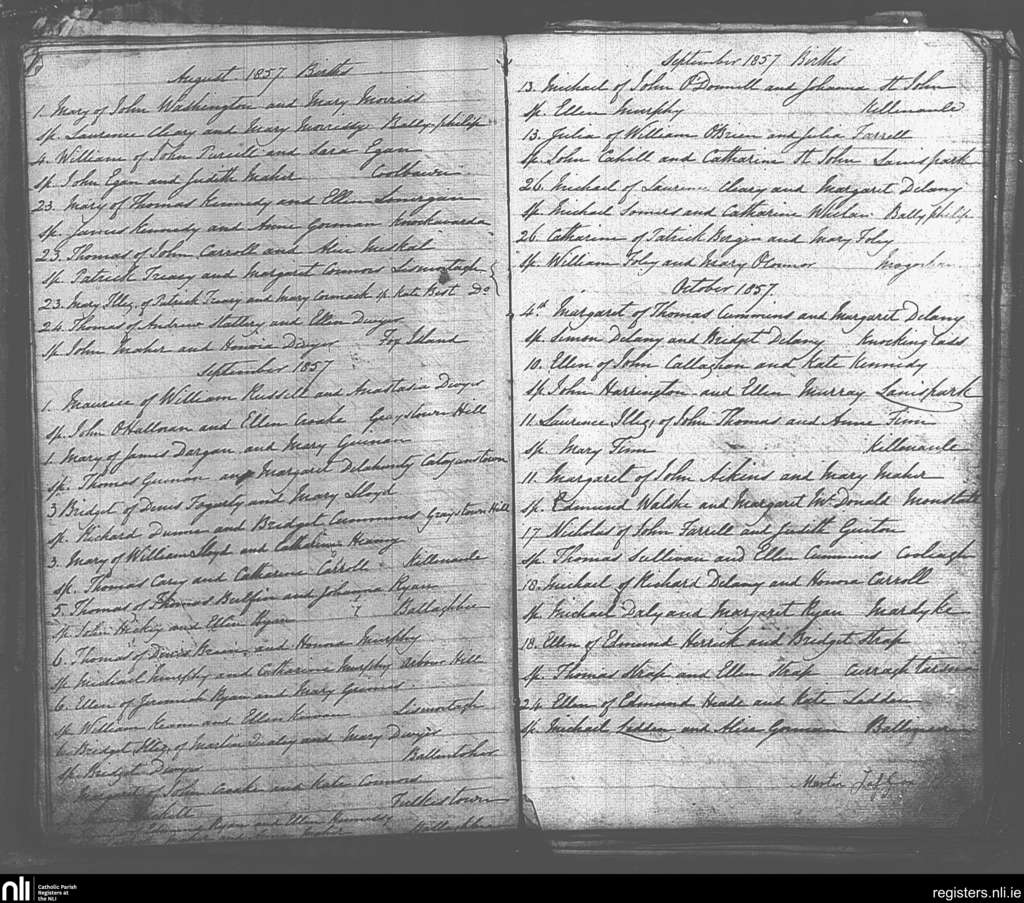 August 1857 Births
1. Mary of John Washington and Mary Morriss
sp. Laurence Cleary and Mary Morressy Ballyphilip
4. William of John Purcill and Sara Egan
sp. John Egan and Judith Maher Coolbawn
23. Mary of Thomas Kennedy and Ellen Lonergan
sp. James Kennedy and Anne Gorman
23. Thomas of John Carroll and Meskal
sp. Patrick Treacy and Margaret Connors Lismortagh
23. Mary Illeg. of Patrick Treacy and Mary Cormack sp. Kate Best Do
24. Thomas of Andrew Slattery and Ellen Dwyer
sp. John Maher and Honora Dwyer Fox Island
September 1857
1. Maurice of William Russell and Anastasia Dwyer
sp. John OHalloran and Ellen Croake Graystown Hill
1. Mary of James Dargan and Mary Guinan
sp. Thomas Guinan and Margaret Delahunty
3 Bridget of Denis Fogarty and Mary Lloyd
sp. Richard Dunne and Bridget Cummins Graystown Hill
3. Mary of William Lloyd and Catharine Heany
sp. Thomas Carey and Catharine Carroll Killenaule
5. Thomas of Thomas Bulfin and Johanna Ryan
sp. John Hickey and Ellen Ryan Ballaghbee
6. Thomas of Denis and Honora Murphy
sp. Michael Murphy and Catharine Murphy Arbour Hill
6. Ellen of Jeremiah Ryan and Mary Grimes
sp. William Keane and Ellen Lismortagh
6 Bridget Illeg. of Martin and Mary Dwyer
sp. Bridget Dwyer
of John Croake and Kate Connors
Hackett
of Edmund Ryan and Ellen Kennedy
September 1857 Births
13. Michael of John O'Donnell and Johanna St John
sp. Ellen Murphy Killenaule
13. Julia of William OBrien and Julia Farrell
sp. John Cahill and Catharine St John Lanispark
26. Michael of Laurence Cleary and Margaret Delany
sp. Michael Somers and Catharine Whelan Ballyphilip
26 Catharine of Patrick Bergin and Mary Foley
sp. William Foley and Mary OConnor
October 1857.
4th Margaret of Thomas Cummins and Margaret Delany
sp. Simon Delany and Bridget Delany
10. Ellen of John Callaghan and Kate Kennedy
sp. John Harrington and Ellen Murray Lanispark
11. Laurence Illeg. of John Thomas and Anne Finn
sp. Mary Finn Killenaule
11. Margaret of John Aikins and Mary Maher
sp. Edmund Walshe and Margaret McDonald
17 Nicholas of John Farrell and Judith Guiton
sp. Thomas Sullivan and Ellen Cummins Cooliagh
18. Michael of Richard Delany and Honora Carroll
sp. Michael Daly and Margaret Ryan Mardyke
18. Ellen of Edmund Herrick and Bridget Strap
sp. Thomas Strap and Ellen Strap
24 Ellen of Edmund Heade and Kate Ledden
sp. Michael Ledden and Alice Gorman
Martin
nli Catholic Parish Registers at the NLI
registers.nli.ie